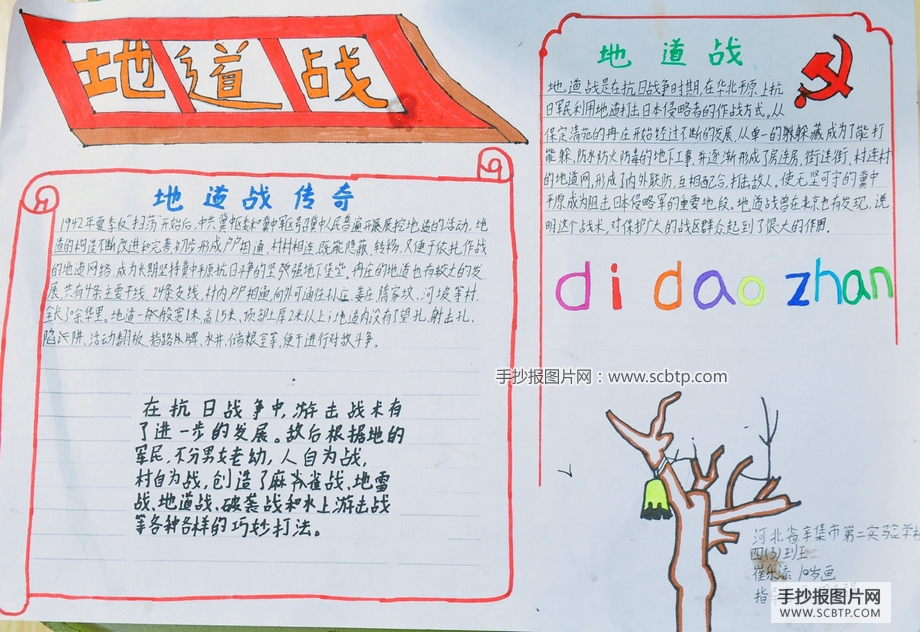 地道战
地道战传奇
1942年夏季反"扫荡"开始后,中共冀中区委和冀中军区号召冀中人民普遍开展挖地道的活动。地
道的构造不断改进和完善,初步形成户户相通、村村相连,既能隐蔽、转移,又便于依托作战
的地道网络,成为长期坚持冀中平原抗日斗争的坚强地下堡垒。冉庄的地道也有较大的发
展,共有4条主要干线,24条支线,村内户户相通,向外可通往孙庄、姜庄隋家坟、河坡等村,
全长30余华里。地道一般宽1米,高1.5米,顶部土厚2米以上;地道内设有了望孔、射击孔、
陷阱、活动翻板、指路牌、水井、储粮室等,便于进行对敌斗争。
在抗日战争中,游击战术有
了进一步的发展。敌后根据地的
军民,不分男女老幼,人自为战,
村自为战,创造了麻雀战、地雷
战、地道战、破袭战和水上游击战
等各种各样的巧妙打法。
地道战
地道战是在抗日战争时期,在华北平原上抗
日军民利用地道打击日本侵略者的作战方式。从
保定清苑的冉庄开始经过不断的发展,从单一的躲藏成为了能打
能躲、防水防火防毒的地下工事,并逐渐形成了房连房、街连街、村连村
的地道网,形成了内外联防,互相配合,打击敌人。使无坚可守的冀中
平原成为阻击日本侵略军的重要地段。地道战曾在北京也有发现,说
明这个战术,对保护广大的战区群众起到了很大的作用。
di dao zhan
手抄报图片网:www.scbtp.com
河北省辛集市第二实验学校
四(3)班
崔乐添 10岁画
指
手抄报图片网
WWW.SCBTP.COM